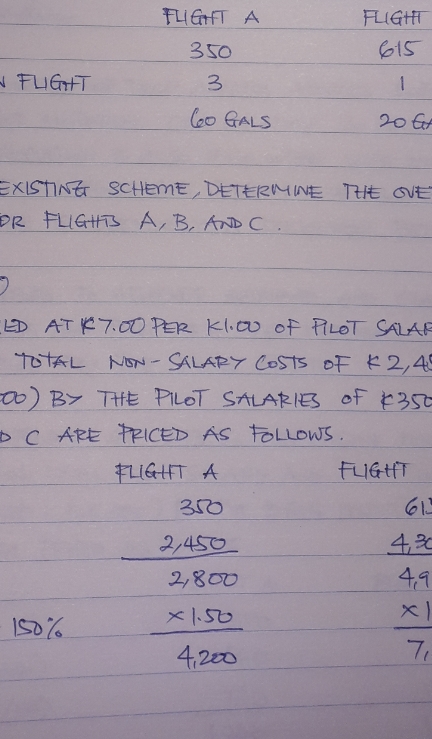 FLIGHT A FLIGHT
350 615
FLIGHT 3 1
60 GALS 20
EXISTING SCHEME, DETERMINE THE
FLIGHTS A, B, AND C.
AT K7.00 PER K1.00 OF PILOT
TOTAL NON-SALARY COSTS OF K2,4
BY THE PILOT SALARIES OF K350
C ARE PRICED AS FOLLOWS.
FLIGHT A FLIGHT
350 61
2,450 4,30
2,800 4,9
150% ×1.50 ×1
4,200 7,